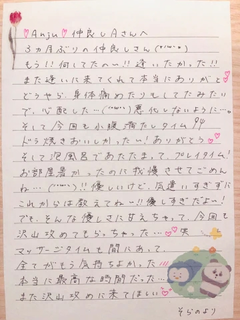 ♡Anju♡ 仲良しAさんへ
3ヵ月ぶりの仲良しさん(*´˘`*)
もう!!何してたの〜!!逢いたかった!!
また逢いに来てくれて本当にありがとう
どうやら、身体痛めたりもしてたみたい
で、心配した…(´･ω･`)悪化しないように…。
そして今回も小腹満たしタイム♪♪
ドラ焼きおいしかったー!ありがとう♡
そして泡風呂であたたまって、プレイタイム!
お部屋暑かったのに我慢させてごめん
ね…(´･ω･`)!!優しいけど、気遣いすぎずに
これからは教えてね〜!!優しすぎだよー!
でも、そんな優しさに甘えちゃって、今回も
沢山攻めてもらっちゃった…♡♡笑
マッサージタイムも間にあって、
全てがもう気持ちよかった!!!
本当に最高な時間だった…♡
また沢山攻めに来てほしい♡
そらのより